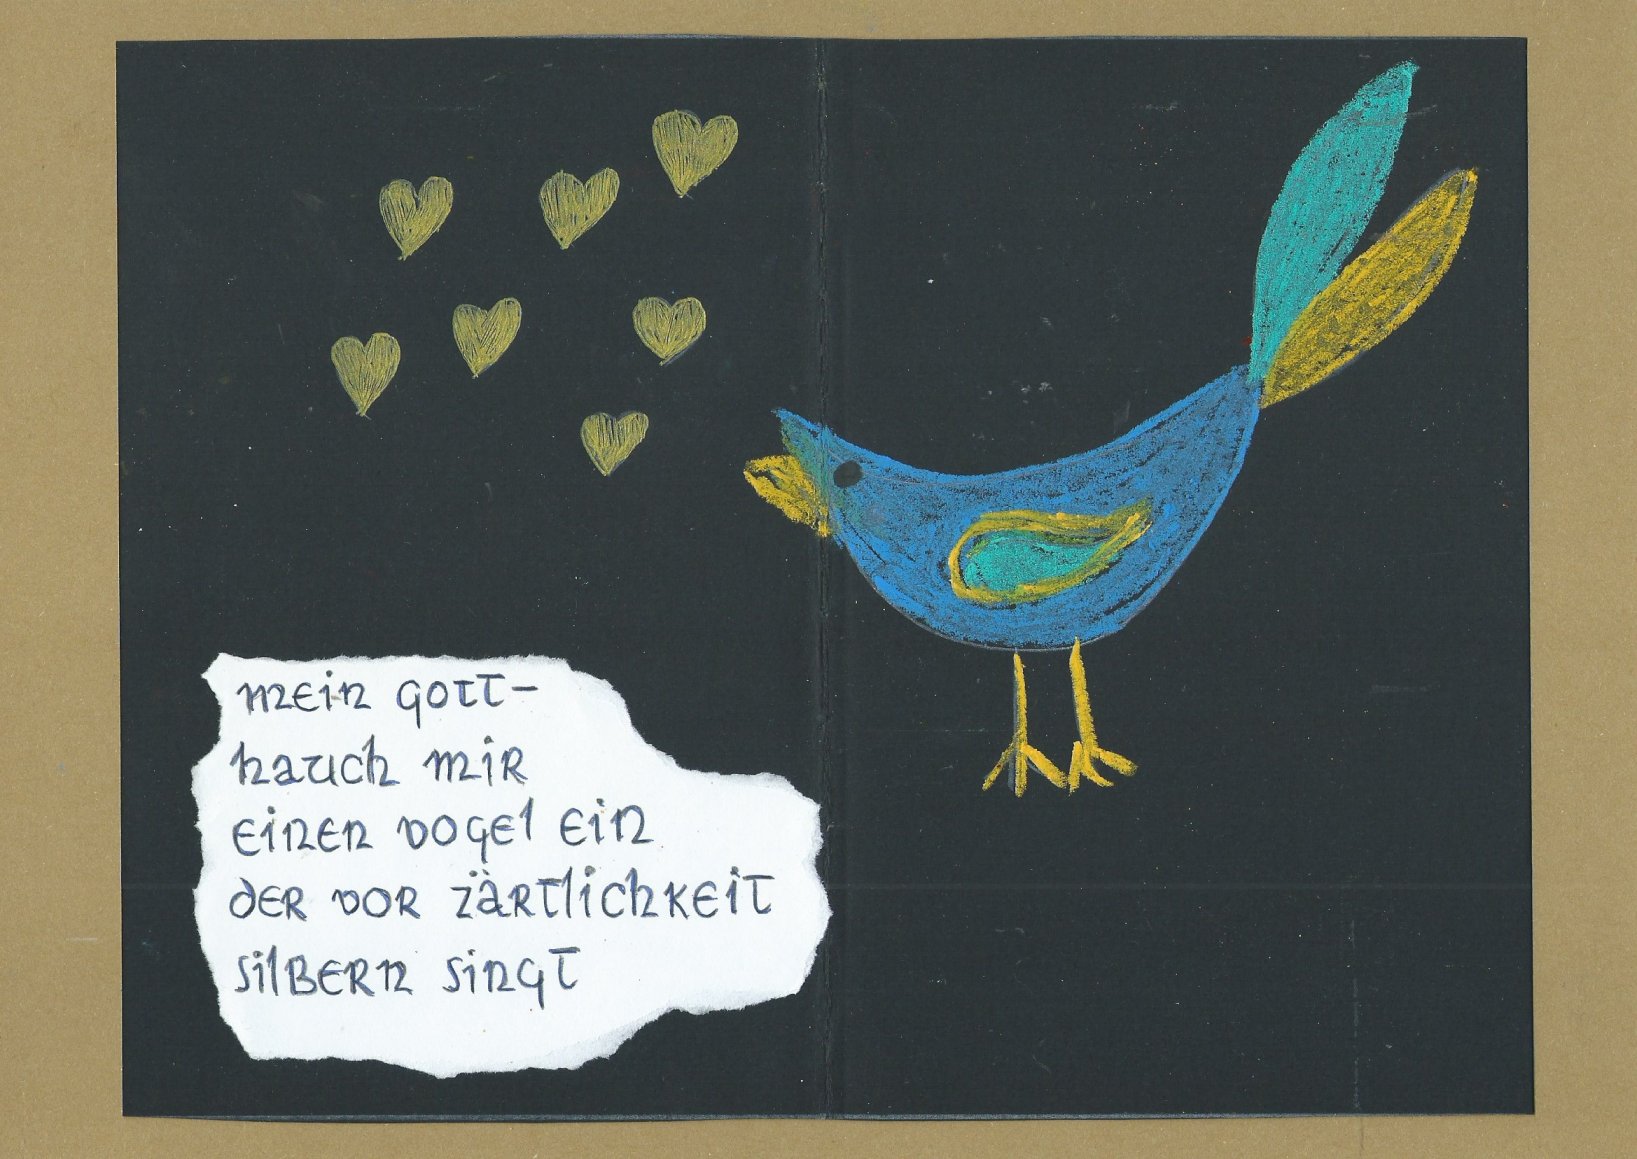 mein gott-
hauch mir
einen vogel ein
der vor zärtlichkeit
silbern singt